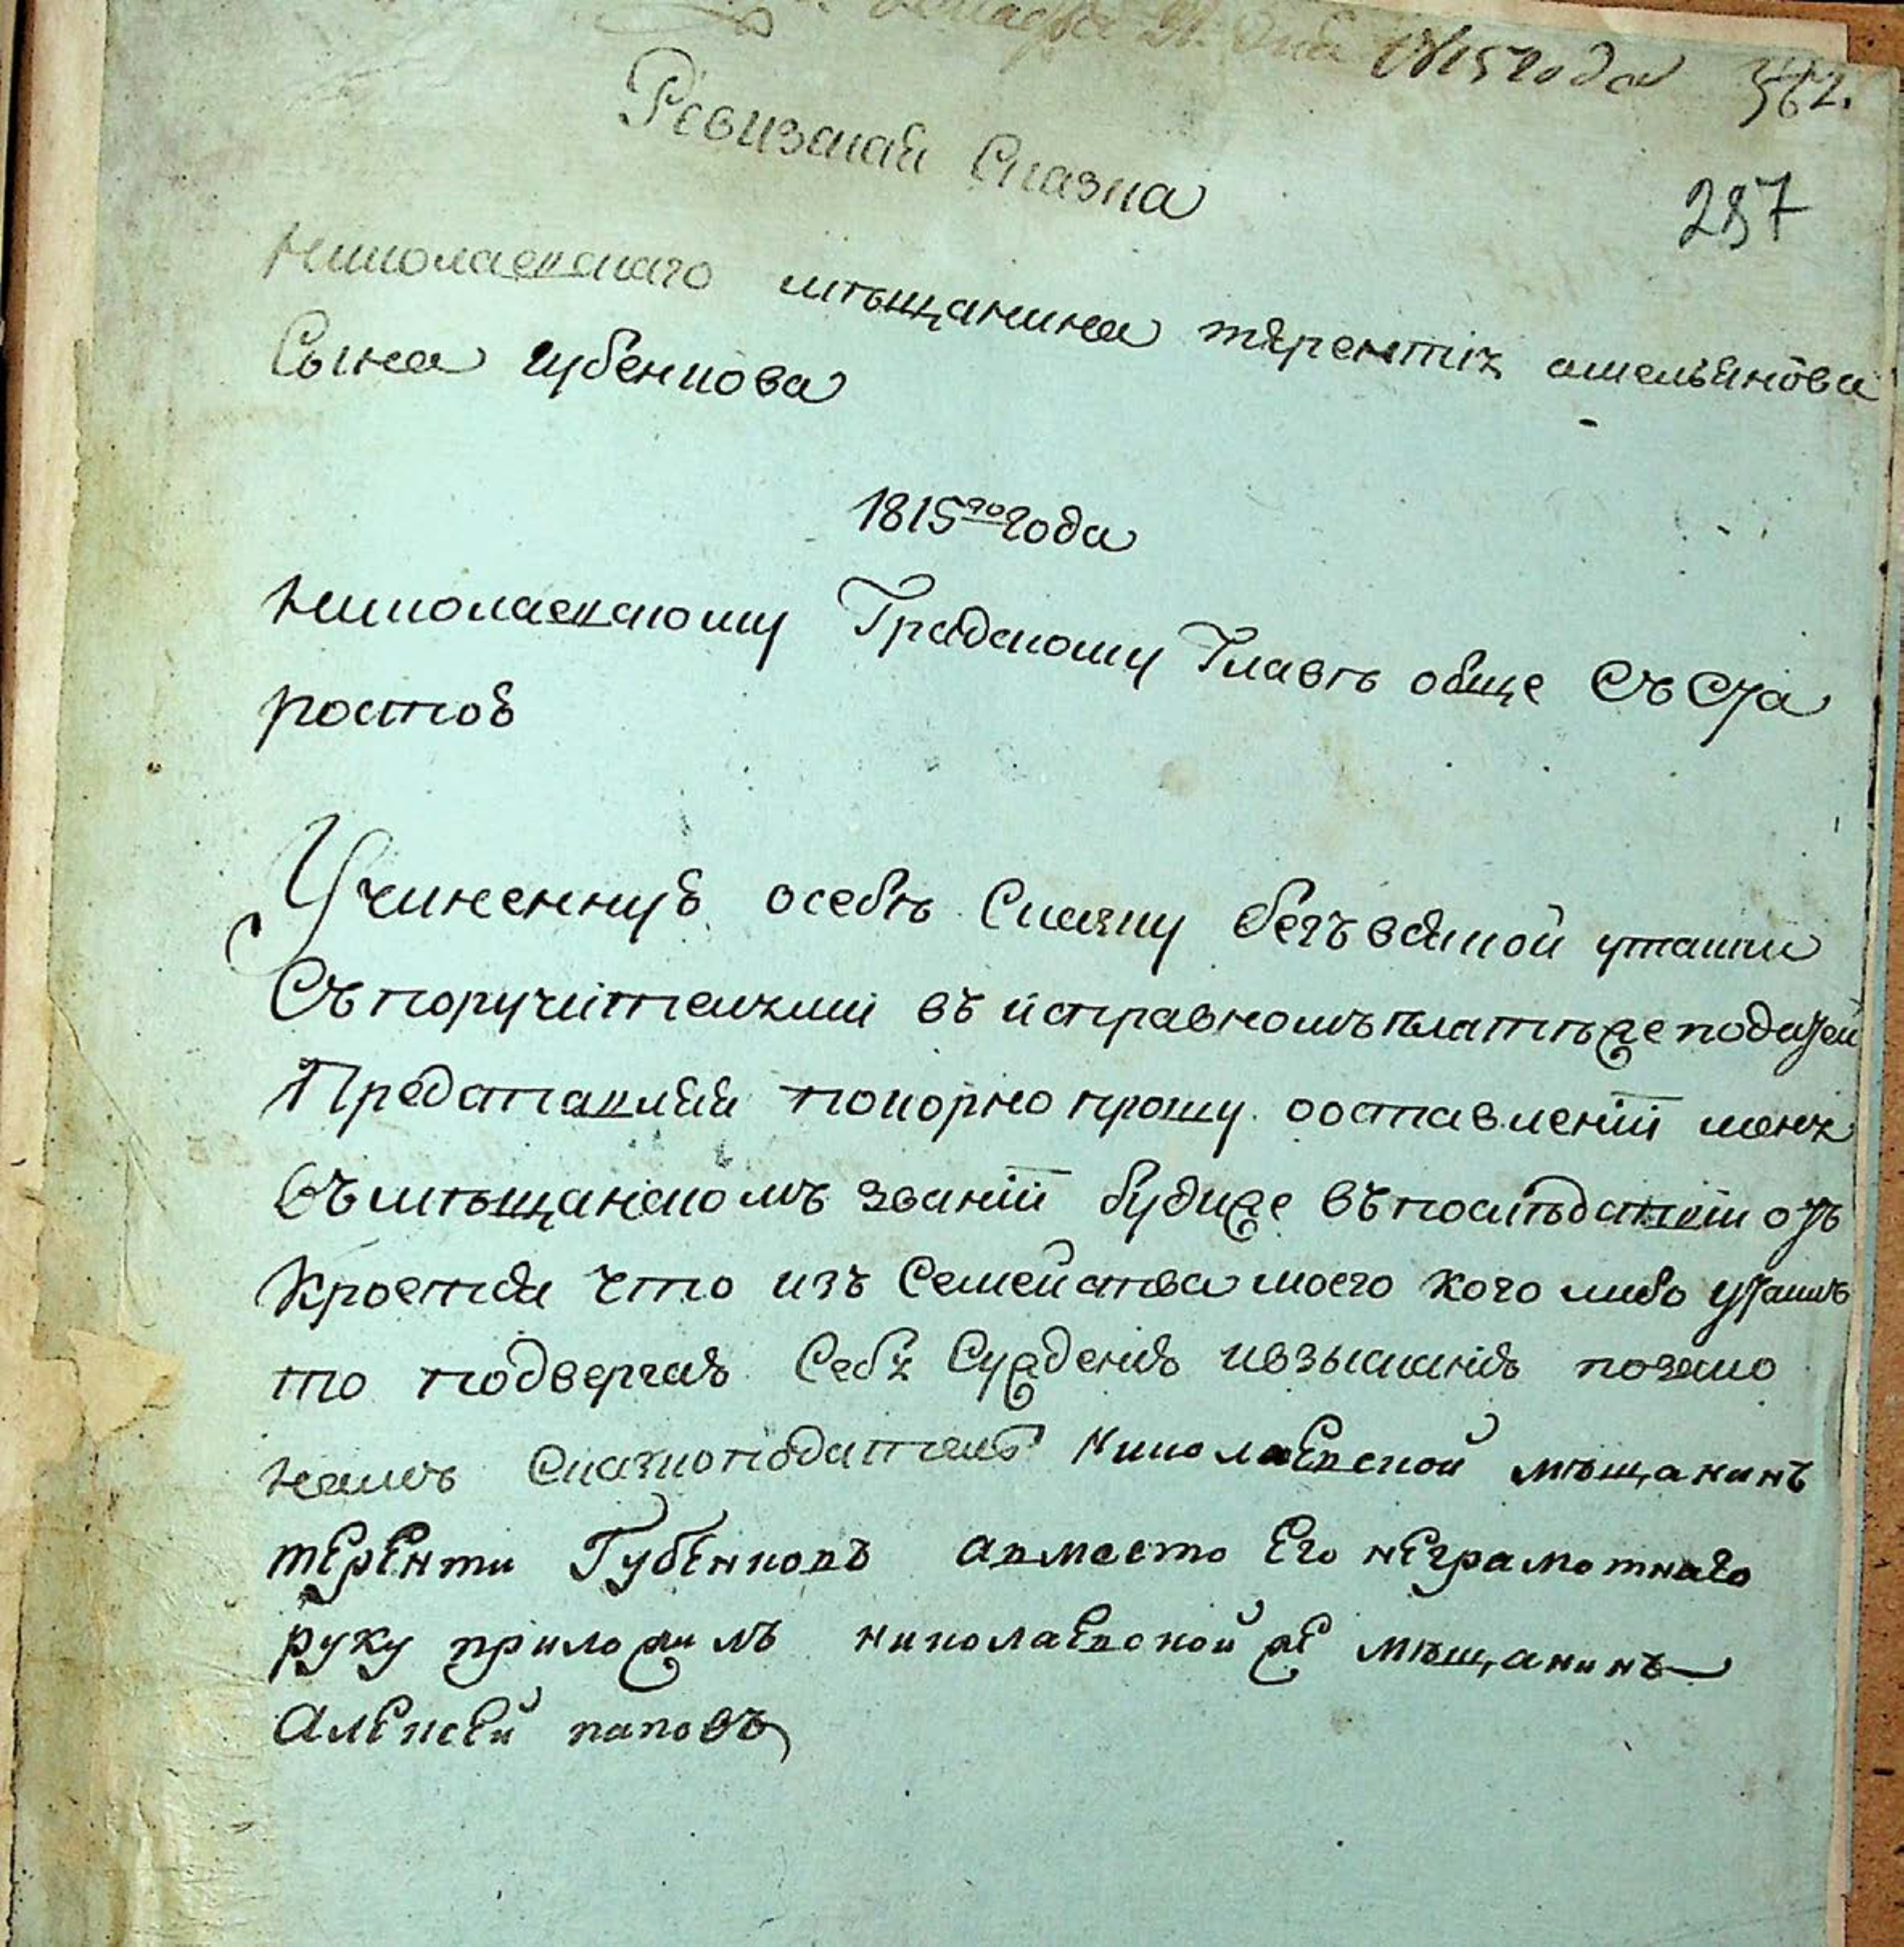 дня 1815 года 562.
Ревизская Сказка
287
николаевскаго мѣщанина терентія амельянова
Сына губенкова
1815го года
николаевскому Градскому Главѣ обще Съ Ста
ростою
Учиненную осебѣ Сказку безъ всякой утайки
Съ поручителями въ исправномъ платѣже податей
Представляя покорно прошу оставленіи меня
въ мѣщанскомъ званіи будиже въ послѣдствіи отъ
Кроется что изъ Семейства моего кого либо утаилъ
то подвергаю Себя Сужденію ивзысканію позако
намъ Сказкоподатель николаевской мѣщанинъ
терЕнти Губенковъ авместо Его неграмотнаго
руку приложилъ николаевской же мѣщанинъ
алексей паповъ